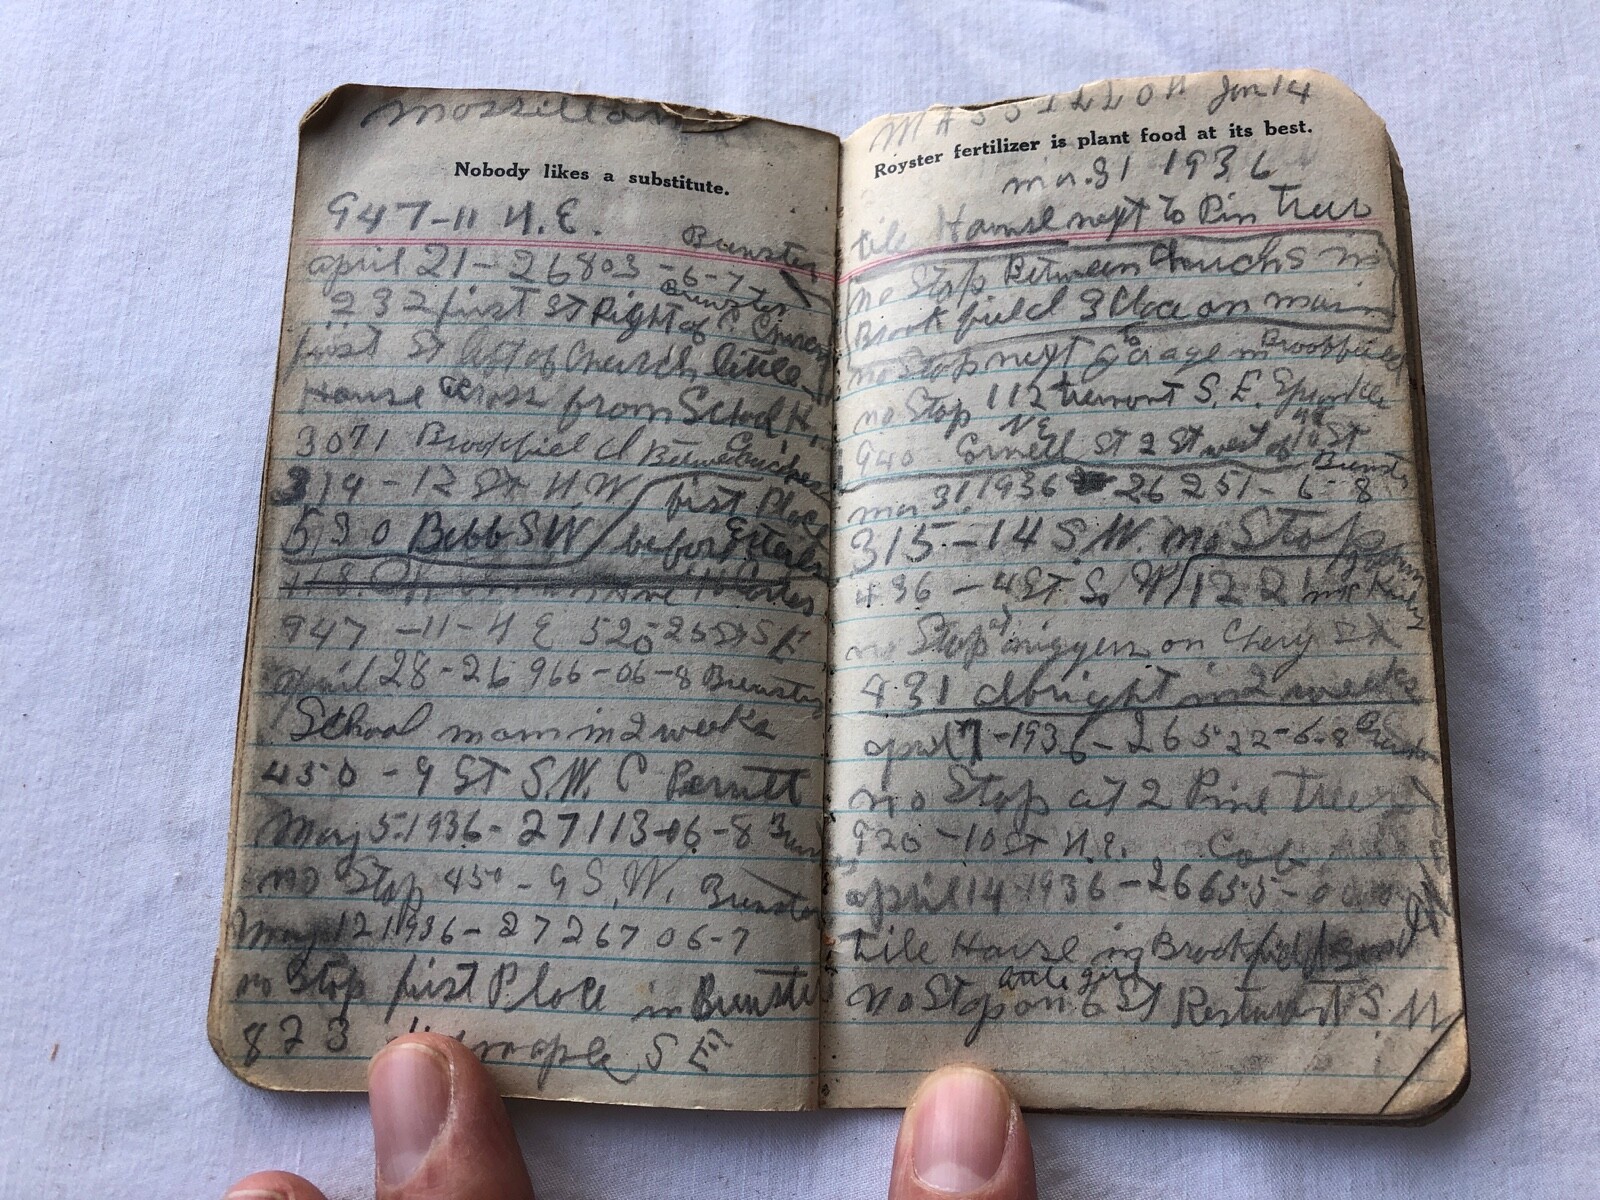 Mossillon
Nobody likes a substitute.
947-11 N.E.
Brewster
april 21-26803-6-7
Brewster
232 first St Right of C. Church
first St left of Church little
House across from School H.
3071 Brookfield Between Churches
319 - 12 St N W first Place
530 Bebb SW before
947 -11- N E 520-25 St S E
april 28-26966-06-8 Brewster
School mam in 2 weeks
450 - 9 St S.W. C
May 5-1936-27113-06-8
no Stop 450-9 S.W. Brewster
May 12 1936-27267 06-7
no Stop first Place in Brewster
823 maple S E
MASSILLON Jan 14
Royster fertilizer is plant food at its best.
mar.31 1936
tile House next to Pin Trees
no Stop Between Churchs in
Brookfield 3 Place on main
no Stop next To Garage in Brookfield
no Stop 112 tremont S.E.
NE
940 Cornell St 2 St west of 10 St
mar 31, 1936 26251-6-8
315-14 S.W. no Stop
436 - 4 St S W 122
no Stop at niggers on Chery St
431 albright in 2 weeks
april 7-1936-26522-6-8
no Stop at 2 Pine trees
926-10 St N.E.
april 14 1936-26655-
tile House in Brookfield
little girl
no Stop on 6 St Resturant S.W